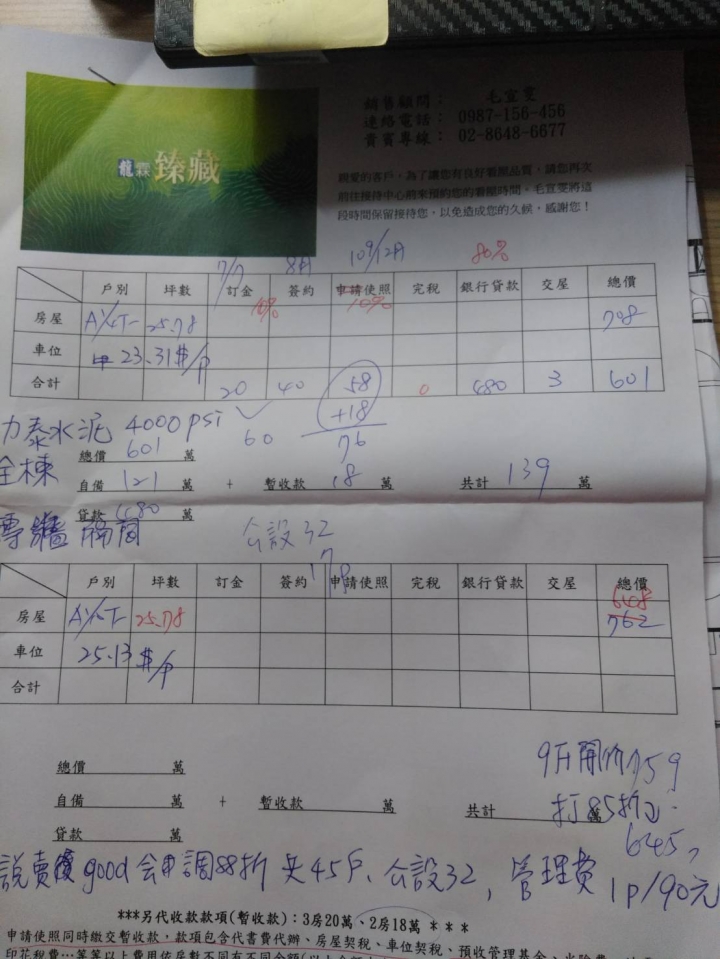 龍霖 臻藏
銷售顧問： 毛宣雯
連絡電話： 0987-156-456
貴賓專線： 02-8648-6677
親愛的客戶，為了讓您有良好看屋品質，請您再次
前往接待中心前來預約您的看屋時間，毛宣雯將這
段時間保留接待您，以免造成您的久候，感謝您！
7/7 8月 109/12月 80%
戶別 坪數 訂金 簽約 申請使照 完稅 銀行貸款 交屋 總價
10% 10%
房屋 25.78 708
車位 23.31 $/p
合計 20 40 58 0 480 3 601
+18
力泰水泥 4000 psi 60 76
全棟 總價 601 萬
自備 121 萬 + 暫收款 18 萬 共計 139 萬
貸款 480 萬
公設 32
戶別 坪數 訂金 簽約 申請使照 完稅 銀行貸款 交屋 總價
648
房屋 25.78 762
車位 25.13 $/p
合計
總價 萬
9F開價759
自備 萬 + 暫收款 萬 共計 萬
打85折
645
貸款 萬
good 會申調88折 共45戶、公設32，管理費 1p/90元
***另代收款款項(暫收款)：3房20萬、2房18萬 * * *
申請使照同時繳交暫收款，款項包含代書費代辦、房屋契稅、車位契稅、預收管理基金、火險費
印花稅費…等等以上費用依房數不同有不同金額